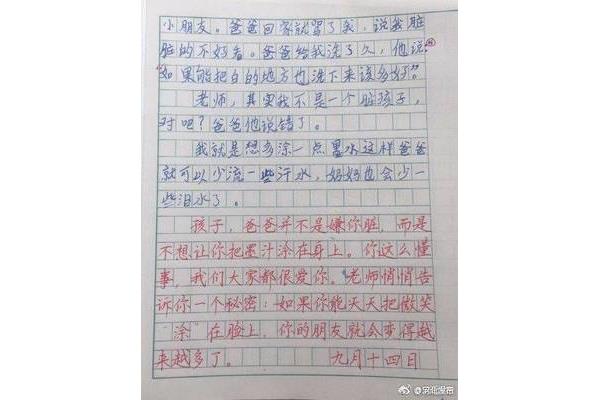 小朋友。爸爸回家就骂了我，说我脏
脏的不好看。爸爸给我洗了久，他说：
“如果能把白的地方也洗下来该多好”
老师，其实我不是一个脏孩子，
对吧？爸爸他说错了。
我就是想多涂一点墨水这样爸爸
就可以少流一些汗水，妈妈也会少一
些泪水了。
孩子，爸爸并不是嫌你脏，而是
不想让你把墨汁涂在身上。你这么懂
事，我们大家都很爱你。老师悄悄告
诉你一个秘密：如果你能天天把微笑
“涂”在脸上，你的朋友就会变得越
来越多了。 九月十四日
@河北发布